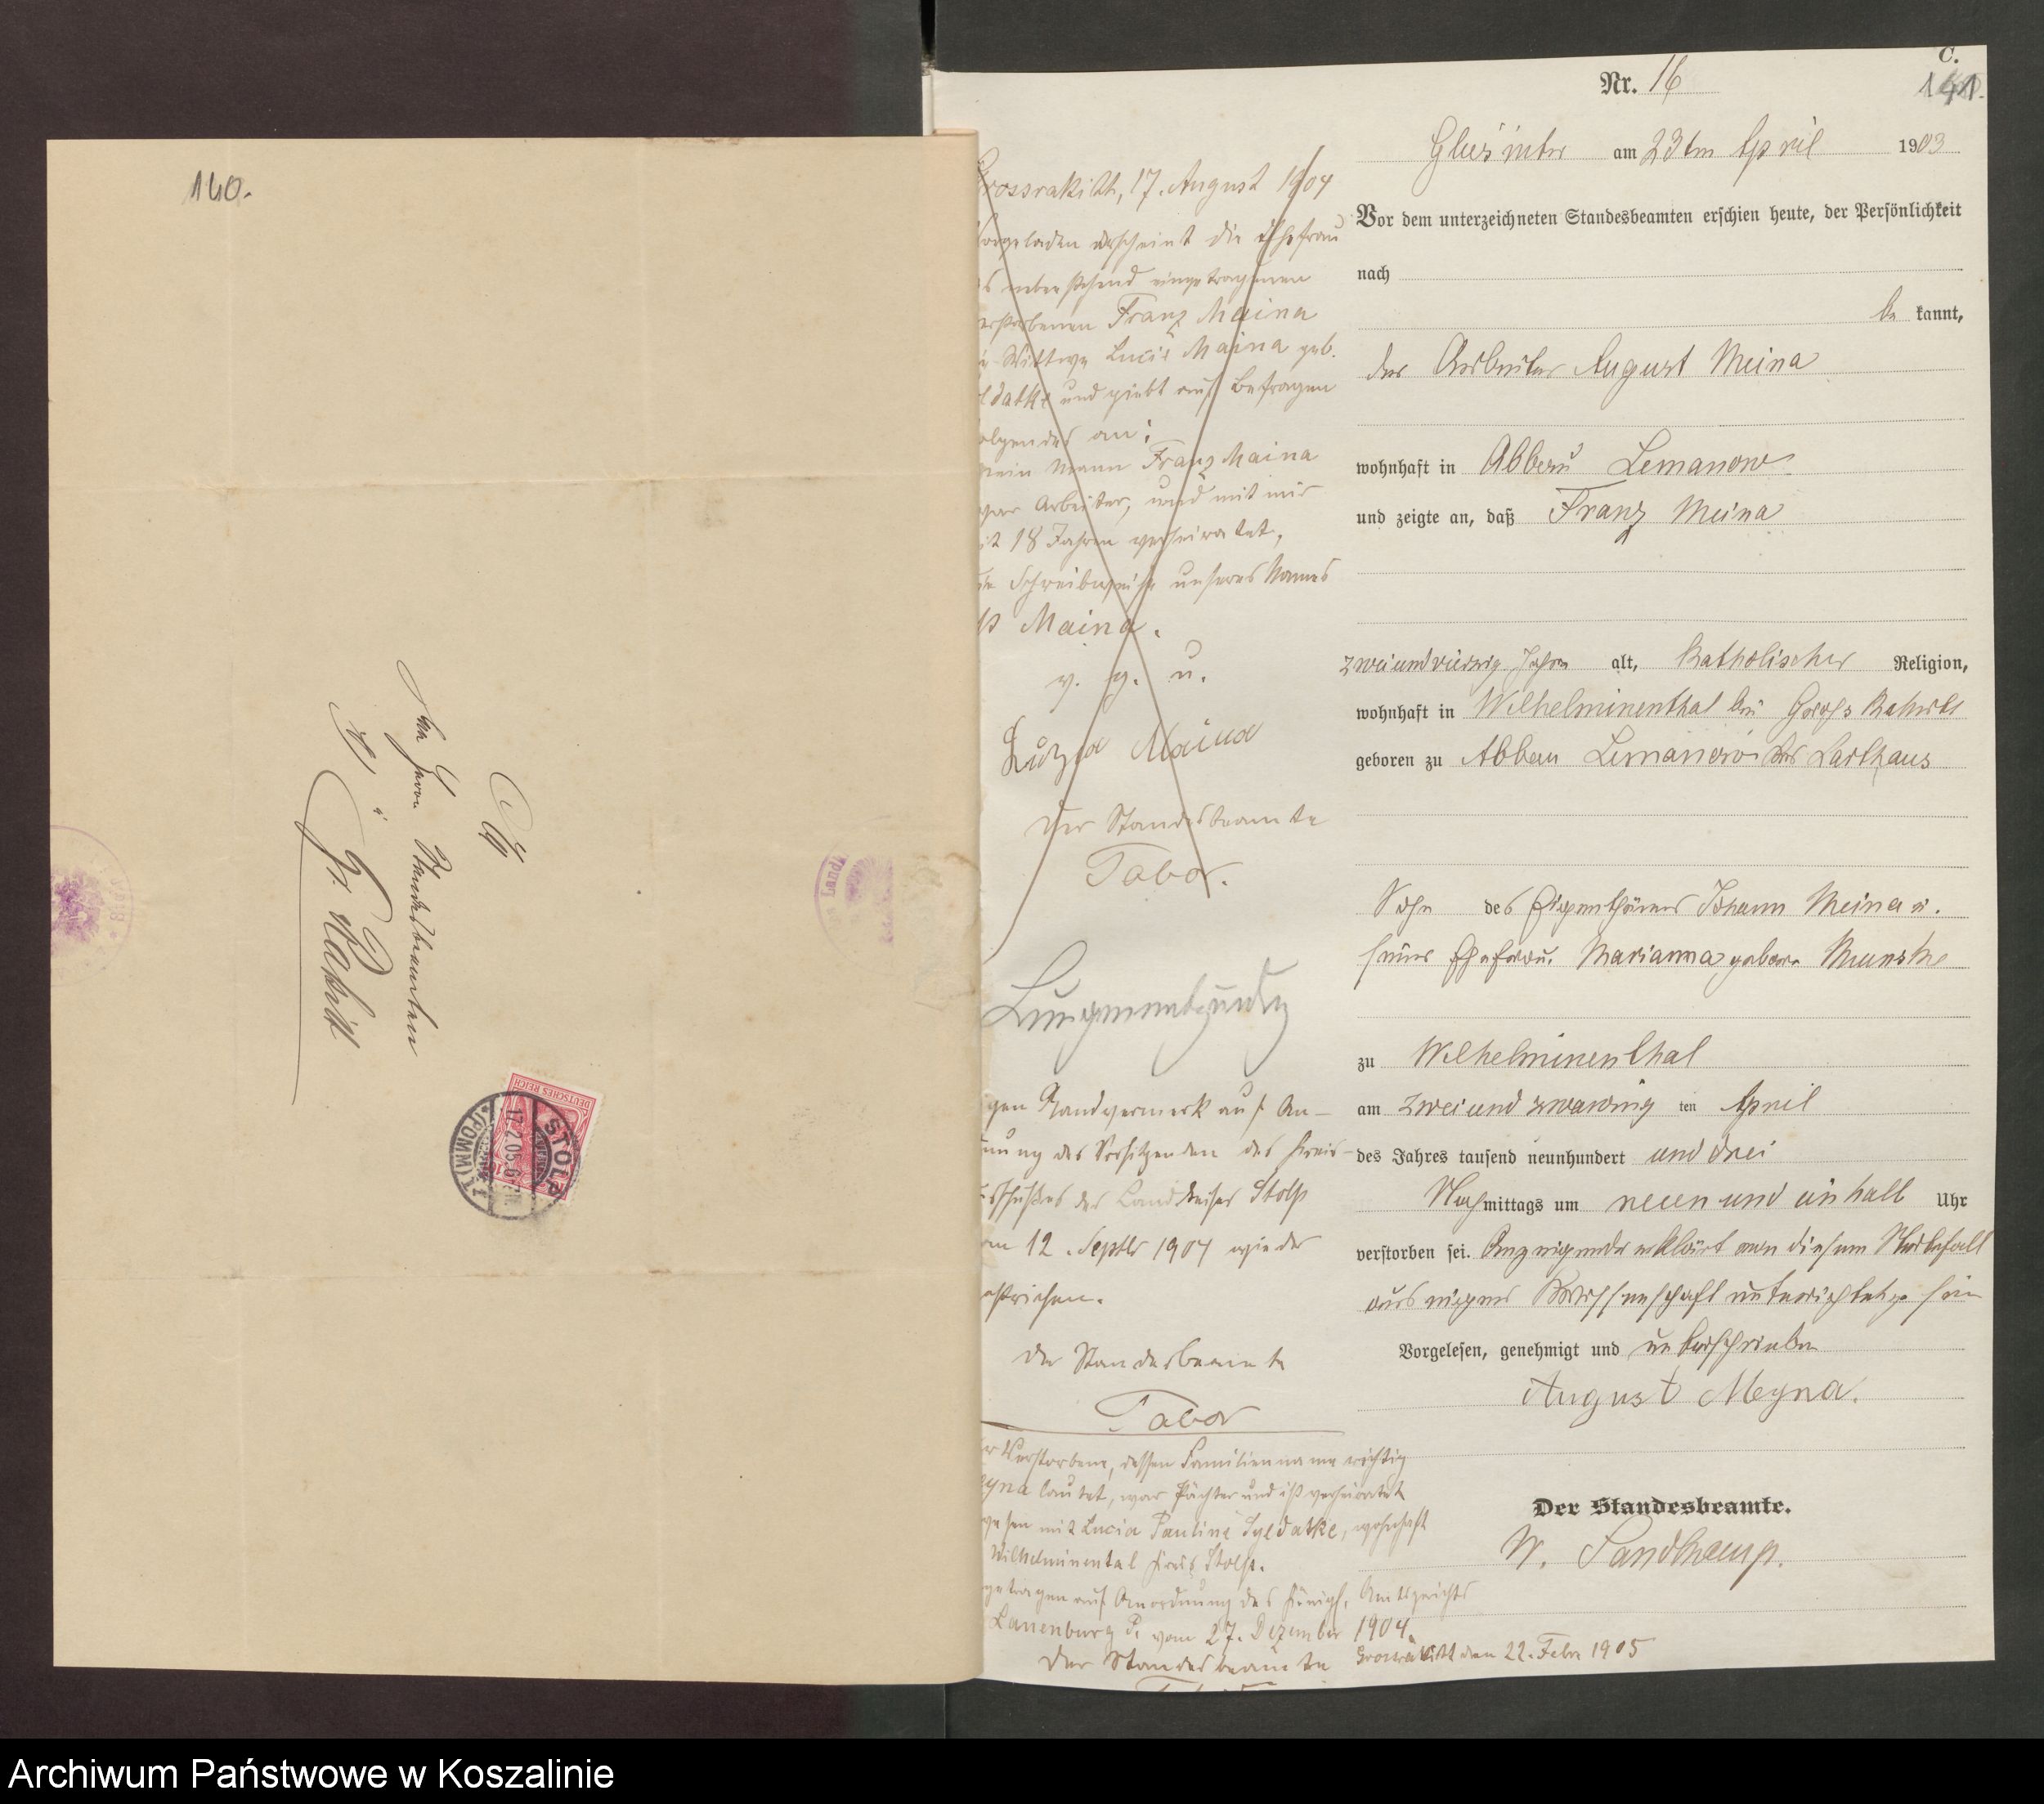 140.
An
den Herrn Standesbeamten
in
Gr. Rakitt
DEUTSCHES REICH
STOLP
17.2.05.6
(POMM)
Land
Grossrakitt, 17. August 1904
Vorgeladen erscheint die Ehefrau
des nebenstehend eingetragenen
verstorbenen Franz Maina
Wittwe Maina geb.
und giebt auf Befragen
folgendes an:
mein Mann Franz Maina
war Arbeiter, und mit mir
seit 18 Jahren verheiratet,
die Schreibweise unseres Namens
ist Maina.
v. g. u.
Maina
Der Standesbeamte
Tabor.
Lungenentzündg
gen Randvermerk auf An-
nung des Vorsitzenden des Kreis-
des Landkreises Stolp
vom 12. Septbr 1904 wieder
gestrichen.
Der Standesbeamte
Tabor
Der Verstorbene, dessen Familienname richtig
Meyna lautet, war Pächter und ist verheiratet
gewesen mit Lucia Pauline Syldatke, wohnhaft
Wilhelminental Kreis Stolp.
getragen auf Anordnung des Königl. Amtsgerichts
Lauenburg P. vom 27. Dezember 1904.
Grossrakitt den 22. Febr 1905
Der Standesbeamte
C.
Nr. 16
141.
Glusinter am 23ten April 1903
Vor dem unterzeichneten Standesbeamten erschien heute, der Persönlichkeit
nach
be kannt,
der Arbeiter August Meina
wohnhaft in Abbau Lemanow
und zeigte an, daß Franz Meina
zweiundvierzig Jahre alt, katholischer Religion,
wohnhaft in Wilhelminenthal bei Gross Rakitt
geboren zu Abbau Carthaus
Sohn des Eigenthümers Johann Meina u.
seiner Ehefrau Marianna geboren
zu Wilhelminenthal
am zwei und zwanzig ten April
des Jahres tausend neunhundert und drei
Nachmittags um neun und ein halb Uhr
verstorben sei. Anzeigender erklärt von diesem Sterbefall
aus eigener Wissenschaft unterrichtet zu sein
Vorgelesen, genehmigt und unterschrieben
August Meyna.
Der Standesbeamte.
W. Sandkamp.
Archiwum Państwowe w Koszalinie